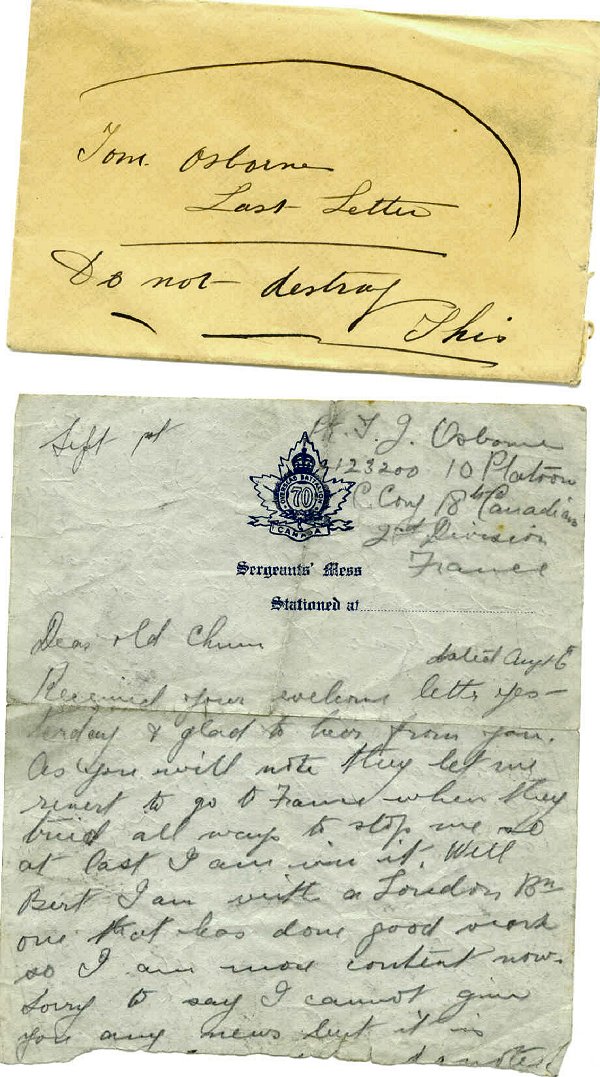 Tom. Osborne
Last Letter
Do not destroy
This
Sept 1st
Pt. T. J. Osborne
2123200 10 Platoon
C. Coy 18th Canadians
2nd Division
France
OVERSEAS BATTALION
70
CANADA
Sergeants' Mess
Stationed at
Dear old Chum
dated Augt 6
Received your welcome letter yes-
terday & glad to hear from you.
As you will note they let me
revert to go to France when they
tried all ways to stop me so
at last I am in it. Well
Bert I am with a London Bn
one that has done good work
so I am more content now.
Sorry to say I cannot give
you any news but it is